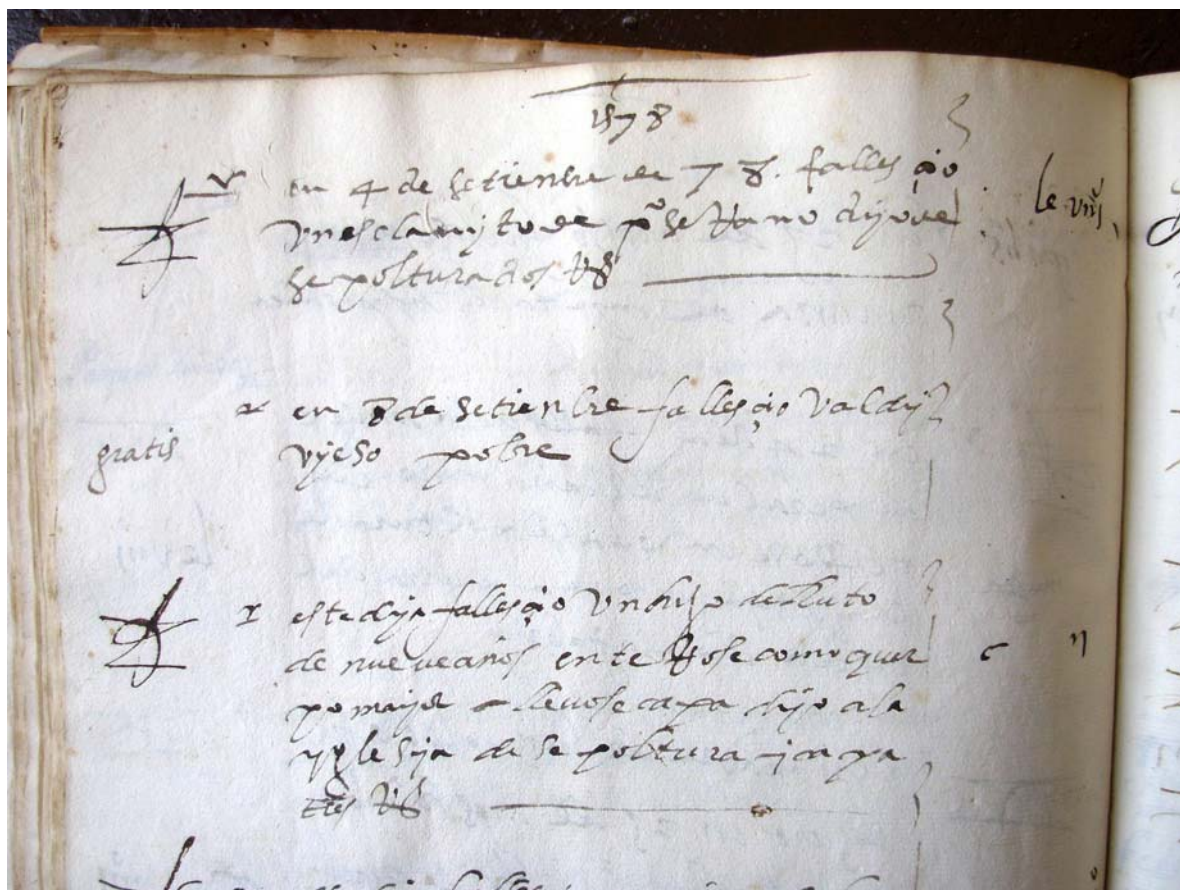 1578
en 4 de setienbre de 78. fallesçio
vn esclavyto de pº serrano dijo de
sepoltura dos Rs
en 8 de setienbre fallesçio valdi
gratis
vjeso pobre
este dja fallesçio vn hijo de
de nueve años enterrose como quer
po mayor llevose capa dijo a la
yglesija de sepoltura y capa
tres Rs